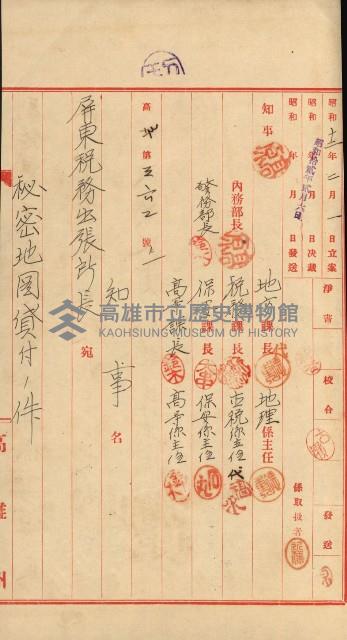 昭和十二年二月一日立案
昭和 年 月 日決裁
昭和 年 月 日發送
昭和拾貳年貳月六日
淨書
校合
發送
係取扱者
知事
內務部長
警務部長
地方課長
稅務課長
保安課長
高等課長
地理係主任
直稅係主任代
保安係主任
高等係主任
高地第三六二號ノ一
知事名
屏東稅務出張所長宛
秘密地圖貸付ノ件
高雄州
高雄市立歷史博物館
KAOHSIUNG MUSEUM OF HISTORY